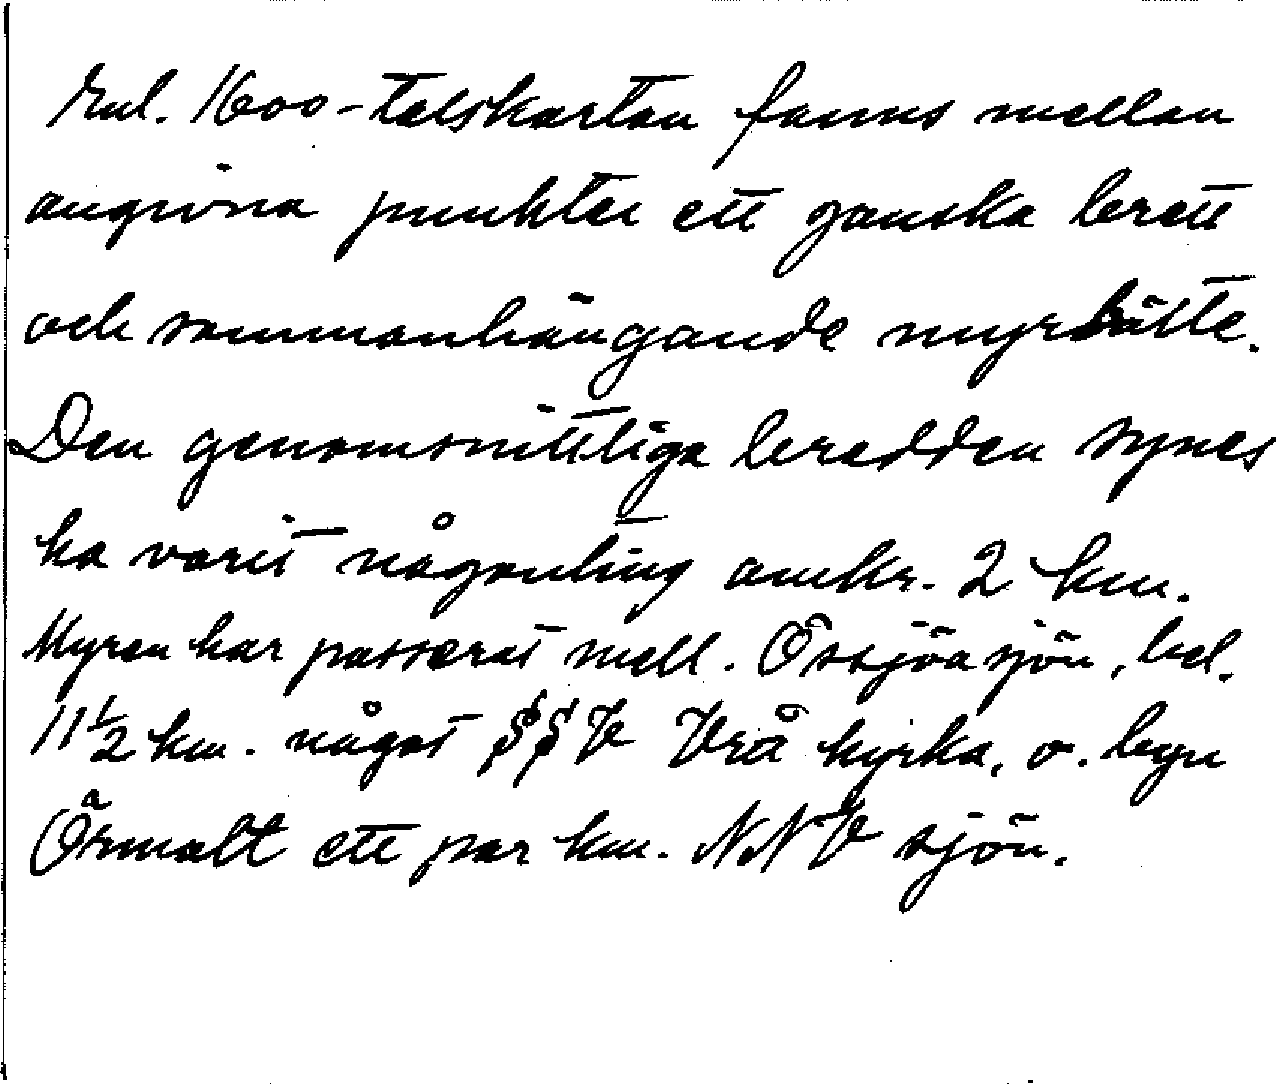 Enl. 1600-talskartan fanns mellan
angivna punkter ett ganska brett
och sammanhängande myrbälte.
Den genomsnittliga bredden synes
ha varit någonting omkr. 2 km.
Myren har passerat mell. Össjöasjön, bel.
11½ km. något SSV Vrå kyrka, o. byn
Örnualt ett par km. NNV sjön.